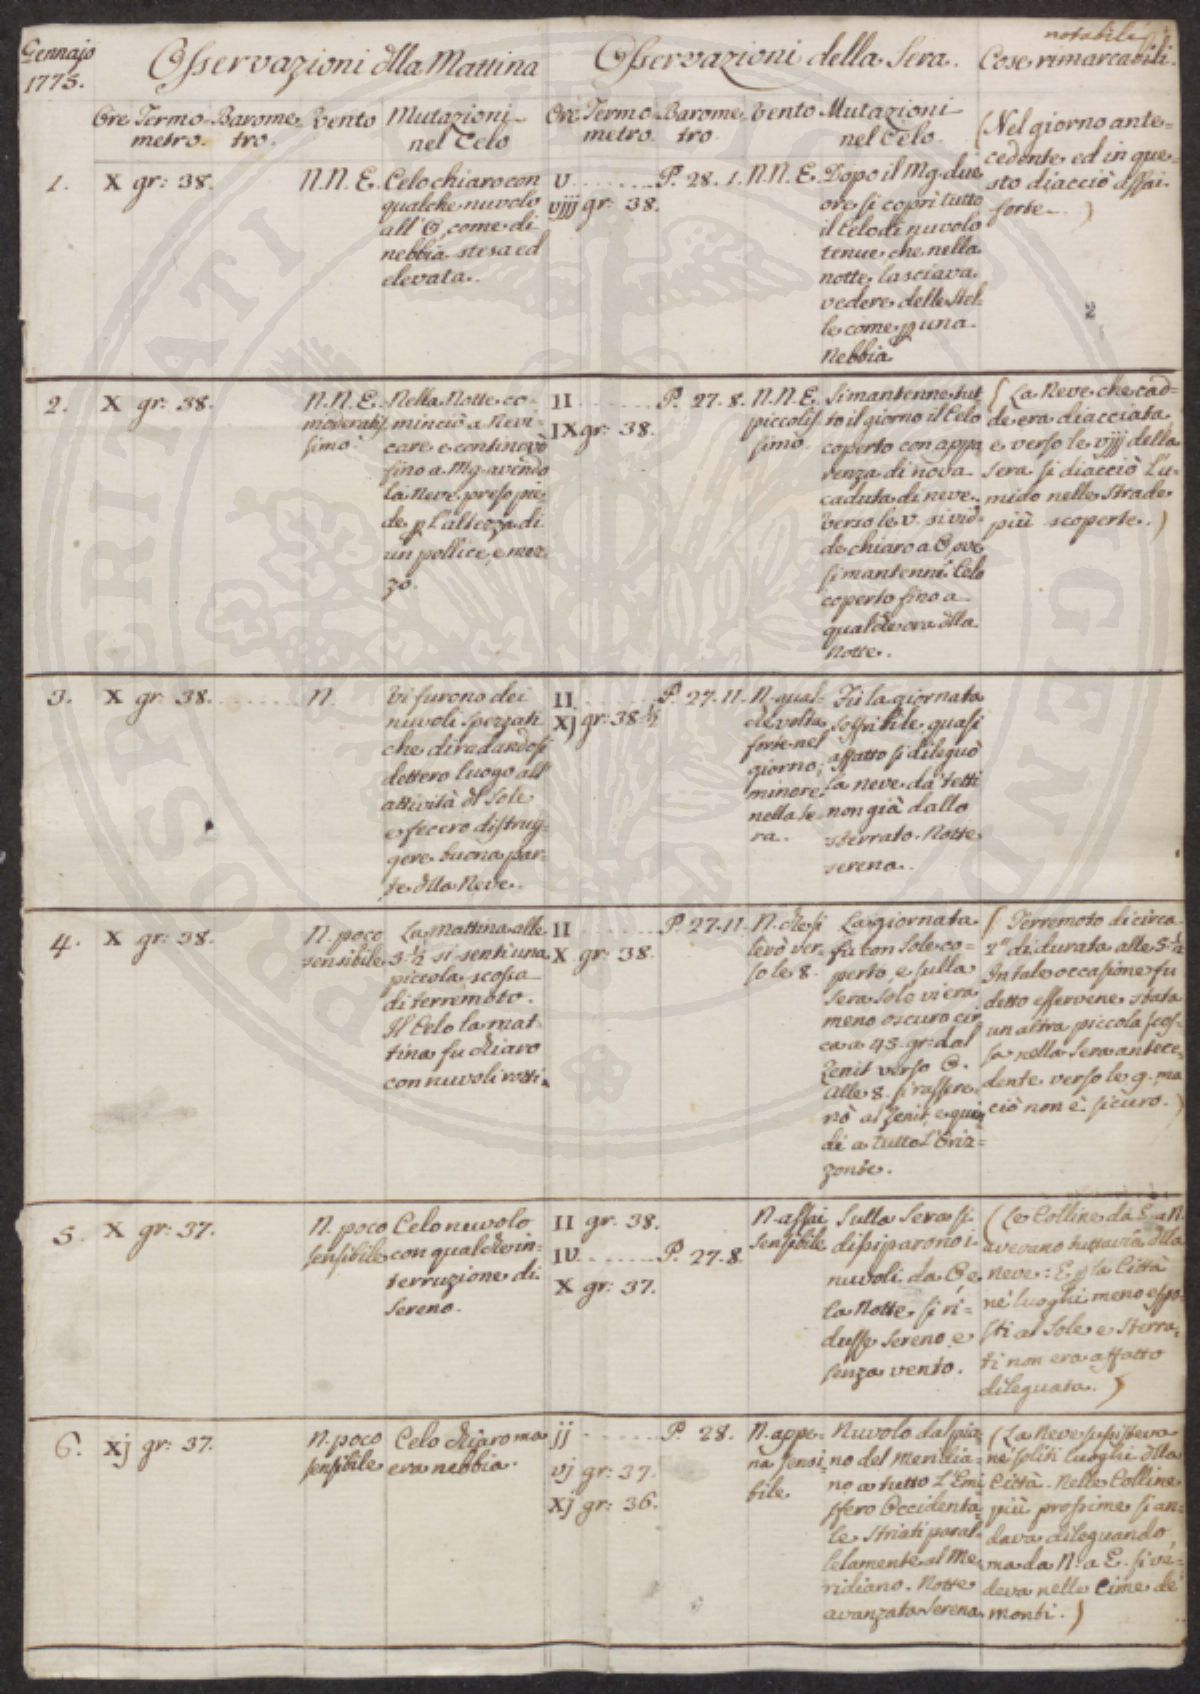 Gennajo
1775.
Osservazioni dlla Mattina
Osservazioni della Sera.
notabili
Cose rimarcabili.
Ore Termo- Barome- Vento Mutazioni
metro. tro. nel Celo
Ore Termo- Barome- Vento Mutazioni
metro. tro. nel Celo.
1. X gr: 38. N.N.E.
Celo chiaro con
qualche nuvolo
all'O, come di
nebbia stesa ed
elevata.
V ........ P. 28. 1. N.N.E.
viij gr: 38.
Dopo il Mg. due
ore si coprì tutto
il Celo di nuvolo
tenue che nella
notte lasciava
vedere delle stel-
le come p una
Nebbia
(Nel giorno ante-
cedente ed in que-
sto diacciò assai
forte.)
2
2. X gr: 38. N.N.E.
moderatis-
simo.
Nella Notte co-
minciò a Nevi-
care e continovò
fino a Mg. avendo
la Neve preso pie-
de p l'altezza di
un pollice, e mez-
zo.
II ........ P. 27. 8. N.N.E.
IX gr: 38. piccolis-
simo.
Si mantenne tut
to il giorno il Celo
coperto con appa
renza di nova
caduta di neve.
Verso le V. si vid-
de chiaro a O, ove
si mantenne. Celo
coperto fino a
qualche ora dlla
Notte.
(La Neve che cad-
de era diacciata
e verso le viij della
Sera si diacciò l'u-
mido nelle strade
più scoperte.)
3. X gr: 38. ........ N.
Vi furono dei
nuvoli spezzati
che diradandosi
dettero luogo all'
attività dl Sole
e fecero distrug-
gere buona par-
te dlla Neve.
II ........ P. 27. 11.
Xj gr: 38 ½
N. qual-
che volta
forte nel
giorno;
minore
nella se-
ra.
Fù la giornata
soffribile quasi
affatto si dileguò
la neve da' tetti
non già dallo
sterrato. Notte
serena.
4. X gr: 38. N. poco
sensibile
La mattina alle
5 ½ si sentì una
piccola scossa
di terremoto.
Il Celo la mat-
tina fu chiaro
con nuvoli rotti.
II ........ P. 27. 11.
X gr: 38.
N. che si
levò ver-
so le 8.
La giornata
fù con Sole co-
perto, e sulla
Sera solo vi era
meno oscuro cir
ca a 45. gr: dal
Zenit verso O.
Alle 8. si rassere-
nò al Zenit, e quin
di a tutto l'Oriz-
zonte.
(Terremoto di circa
2" di durata alle 5 ½
In tale occasione fu
detto esservene stata
un altra piccola scos-
sa nella Sera antece-
dente verso le 9. ma
ciò non è sicuro.)
5. X gr: 37. N. poco
sensibile
Celo nuvolo
con qualche in-
terruzione di
Sereno.
II gr: 38.
IV ........ P. 27. 8
X gr: 37.
N. assai
sensibile
Sulla Sera si
dissiparono i
nuvoli da O e
la Notte si ri-
dusse Sereno, e
senza vento.
(Le Colline da E a N.
avevano tuttavia dlla
neve: E p la Città
né luoghi meno espo-
sti al Sole e sterra-
ti non era affatto
dileguata.)
6. Xj gr: 37. N. poco
sensibile
Celo chiaro ma
era nebbia.
jj ........ P. 28.
vj gr: 37.
Xj gr: 36.
N. appe-
na sensi-
bile
Nuvolo dal pia-
no del Meridia-
no a tutto l'Emi
sfero Occidenta-
le striati paral-
lelamente al Me-
ridiano. Notte
avanzata Serena
(La Neve sussisteva
né soliti luoghi dlla
Città. Nelle Colline
più prossime si an-
dava dileguando,
ma da N. a E. si ve-
deva nelle Cime de'
monti.)
PROSPERITATI PUBLICAE AUGENDAE